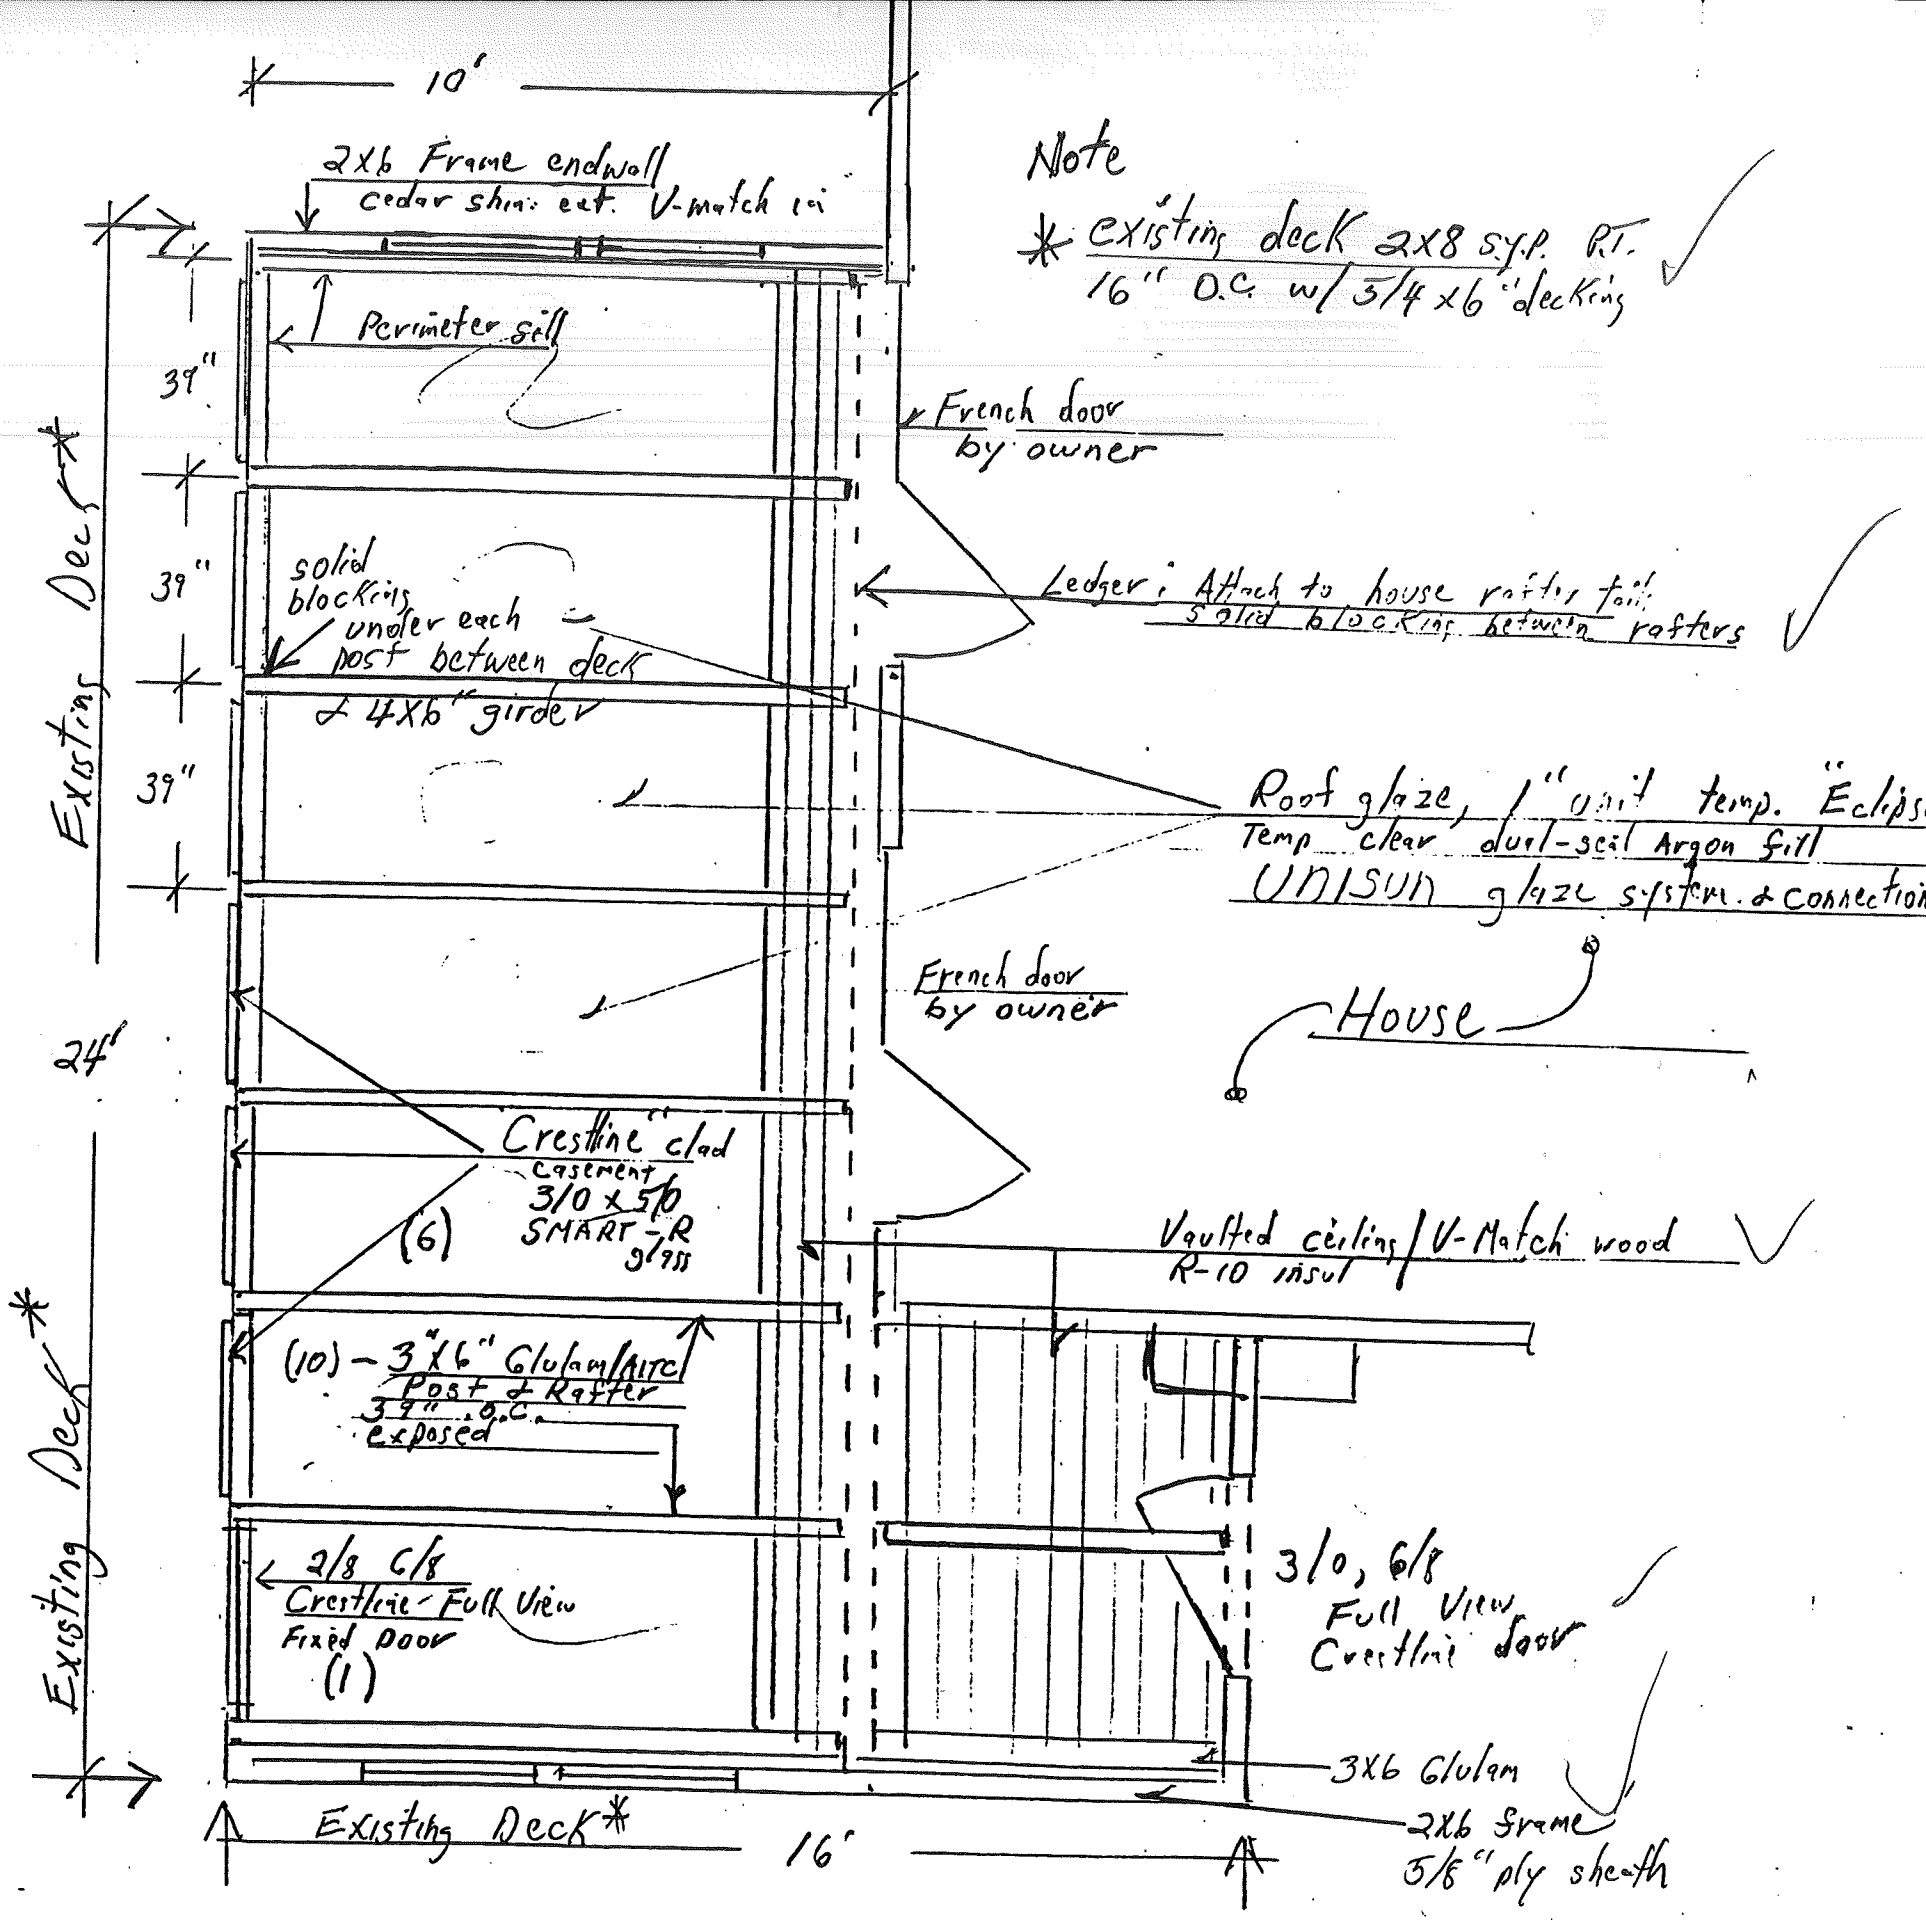 10'
2X6 Frame endwall
cedar ext. V-match in
Note
* existing deck 2X8 S.Y.P. P.T.
16" O.C. w/ 5/4 x6" decking
Perimeter sill
39"
French door
by owner
Existing Deck*
39"
solid
blocking
under each
post between deck
& 4X6" girder
Ledger: Attach to house rafter
solid blocking between rafters
39"
Roof glaze, 1" unit temp. "Eclips
Temp clear dual-seal Argon fill
UNISUN glaze system. & connection
French door
by owner
House
24'
Crestline" clad
casement
3/0 x 5/0
SMART-R
glass
(6)
Vaulted ceiling/V-Match wood
R-10 insul
(10) - 3"X6" Glulam/AITC
Post & Rafter
39" O.C.
exposed
Existing Deck*
2/8 6/8
Crestline-Full View
Fixed Door
(1)
3/0, 6/8
Full View
Crestline door
3X6 Glulam
2X6 frame
5/8" ply sheath
Existing Deck*
16'